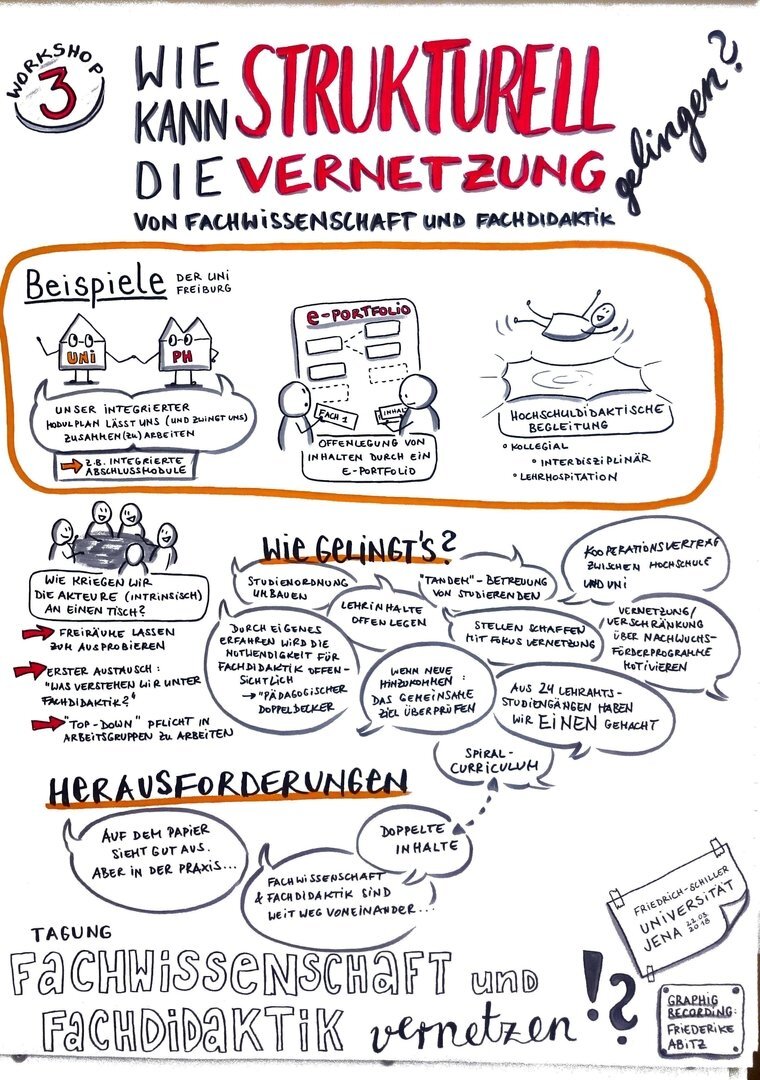 WORKSHOP
3
WIE
KANN STRUKTURELL
DIE VERNETZUNG gelingen?
VON FACHWISSENSCHAFT UND FACHDIDAKTIK
Beispiele DER UNI
FREIBURG
UNI
PH
UNSER INTEGRIERTER
MODULPLAN LÄSST UNS (UND ZWINGT UNS)
ZUSAMMEN(ZU)ARBEITEN
Z.B. INTEGRIERTE
ABSCHLUSSMODULE
e-PORTFOLIO
FACH 1
INHALT
OFFENLEGUNG VON
INHALTEN DURCH EIN
E-PORTFOLIO
HOCHSCHULDIDAKTISCHE
BEGLEITUNG
° KOLLEGIAL
° INTERDISZIPLINÄR
° LEHRHOSPITATION
WIE KRIEGEN WIR
DIE AKTEURE (INTRINSISCH)
AN EINEN TISCH?
FREIRÄUME LASSEN
ZUM AUSPROBIEREN
ERSTER AUSTAUSCH:
"WAS VERSTEHEN WIR UNTER
FACHDIDAKTIK?"
"TOP-DOWN" PFLICHT IN
ARBEITSGRUPPEN ZU ARBEITEN
WIE GELINGT'S?
STUDIENORDNUNG
UMBAUEN
"TANDEM"-BETREUUNG
VON STUDIERENDEN
KOOPERATIONSVERTRAG
ZWISCHEN HOCHSCHULE
UND UNI
LEHRINHALTE
OFFENLEGEN
STELLEN SCHAFFEN
MIT FOKUS VERNETZUNG
VERNETZUNG/
VERSCHRÄNKUNG
ÜBER NACHWUCHS-
FÖRDERPROGRAMME
MOTIVIEREN
DURCH EIGENES
ERFAHREN WIRD DIE
NOTWENDIGKEIT FÜR
FACHDIDAKTIK OFFEN-
SICHTLICH
→ "PÄDAGOGISCHER
DOPPELDECKER
WENN NEUE
HINZUKOMMEN:
DAS GEMEINSAME
ZIEL ÜBERPRÜFEN
AUS 24 LEHRAMTS-
STUDIENGÄNGEN HABEN
WIR EINEN GEMACHT
SPIRAL-
CURRICULUM
HERAUSFORDERUNGEN
AUF DEM PAPIER
SIEHT GUT AUS.
ABER IN DER PRAXIS...
DOPPELTE
INHALTE
FACHWISSENSCHAFT
& FACHDIDAKTIK SIND
WEIT WEG VONEINANDER...
FRIEDRICH-SCHILLER
UNIVERSITÄT
JENA 22.03
2018
TAGUNG
FACHWISSENSCHAFT UND
FACHDIDAKTIK vernetzen !?
GRAPHIG
RECORDING:
FRIEDERIKE
ABITZ